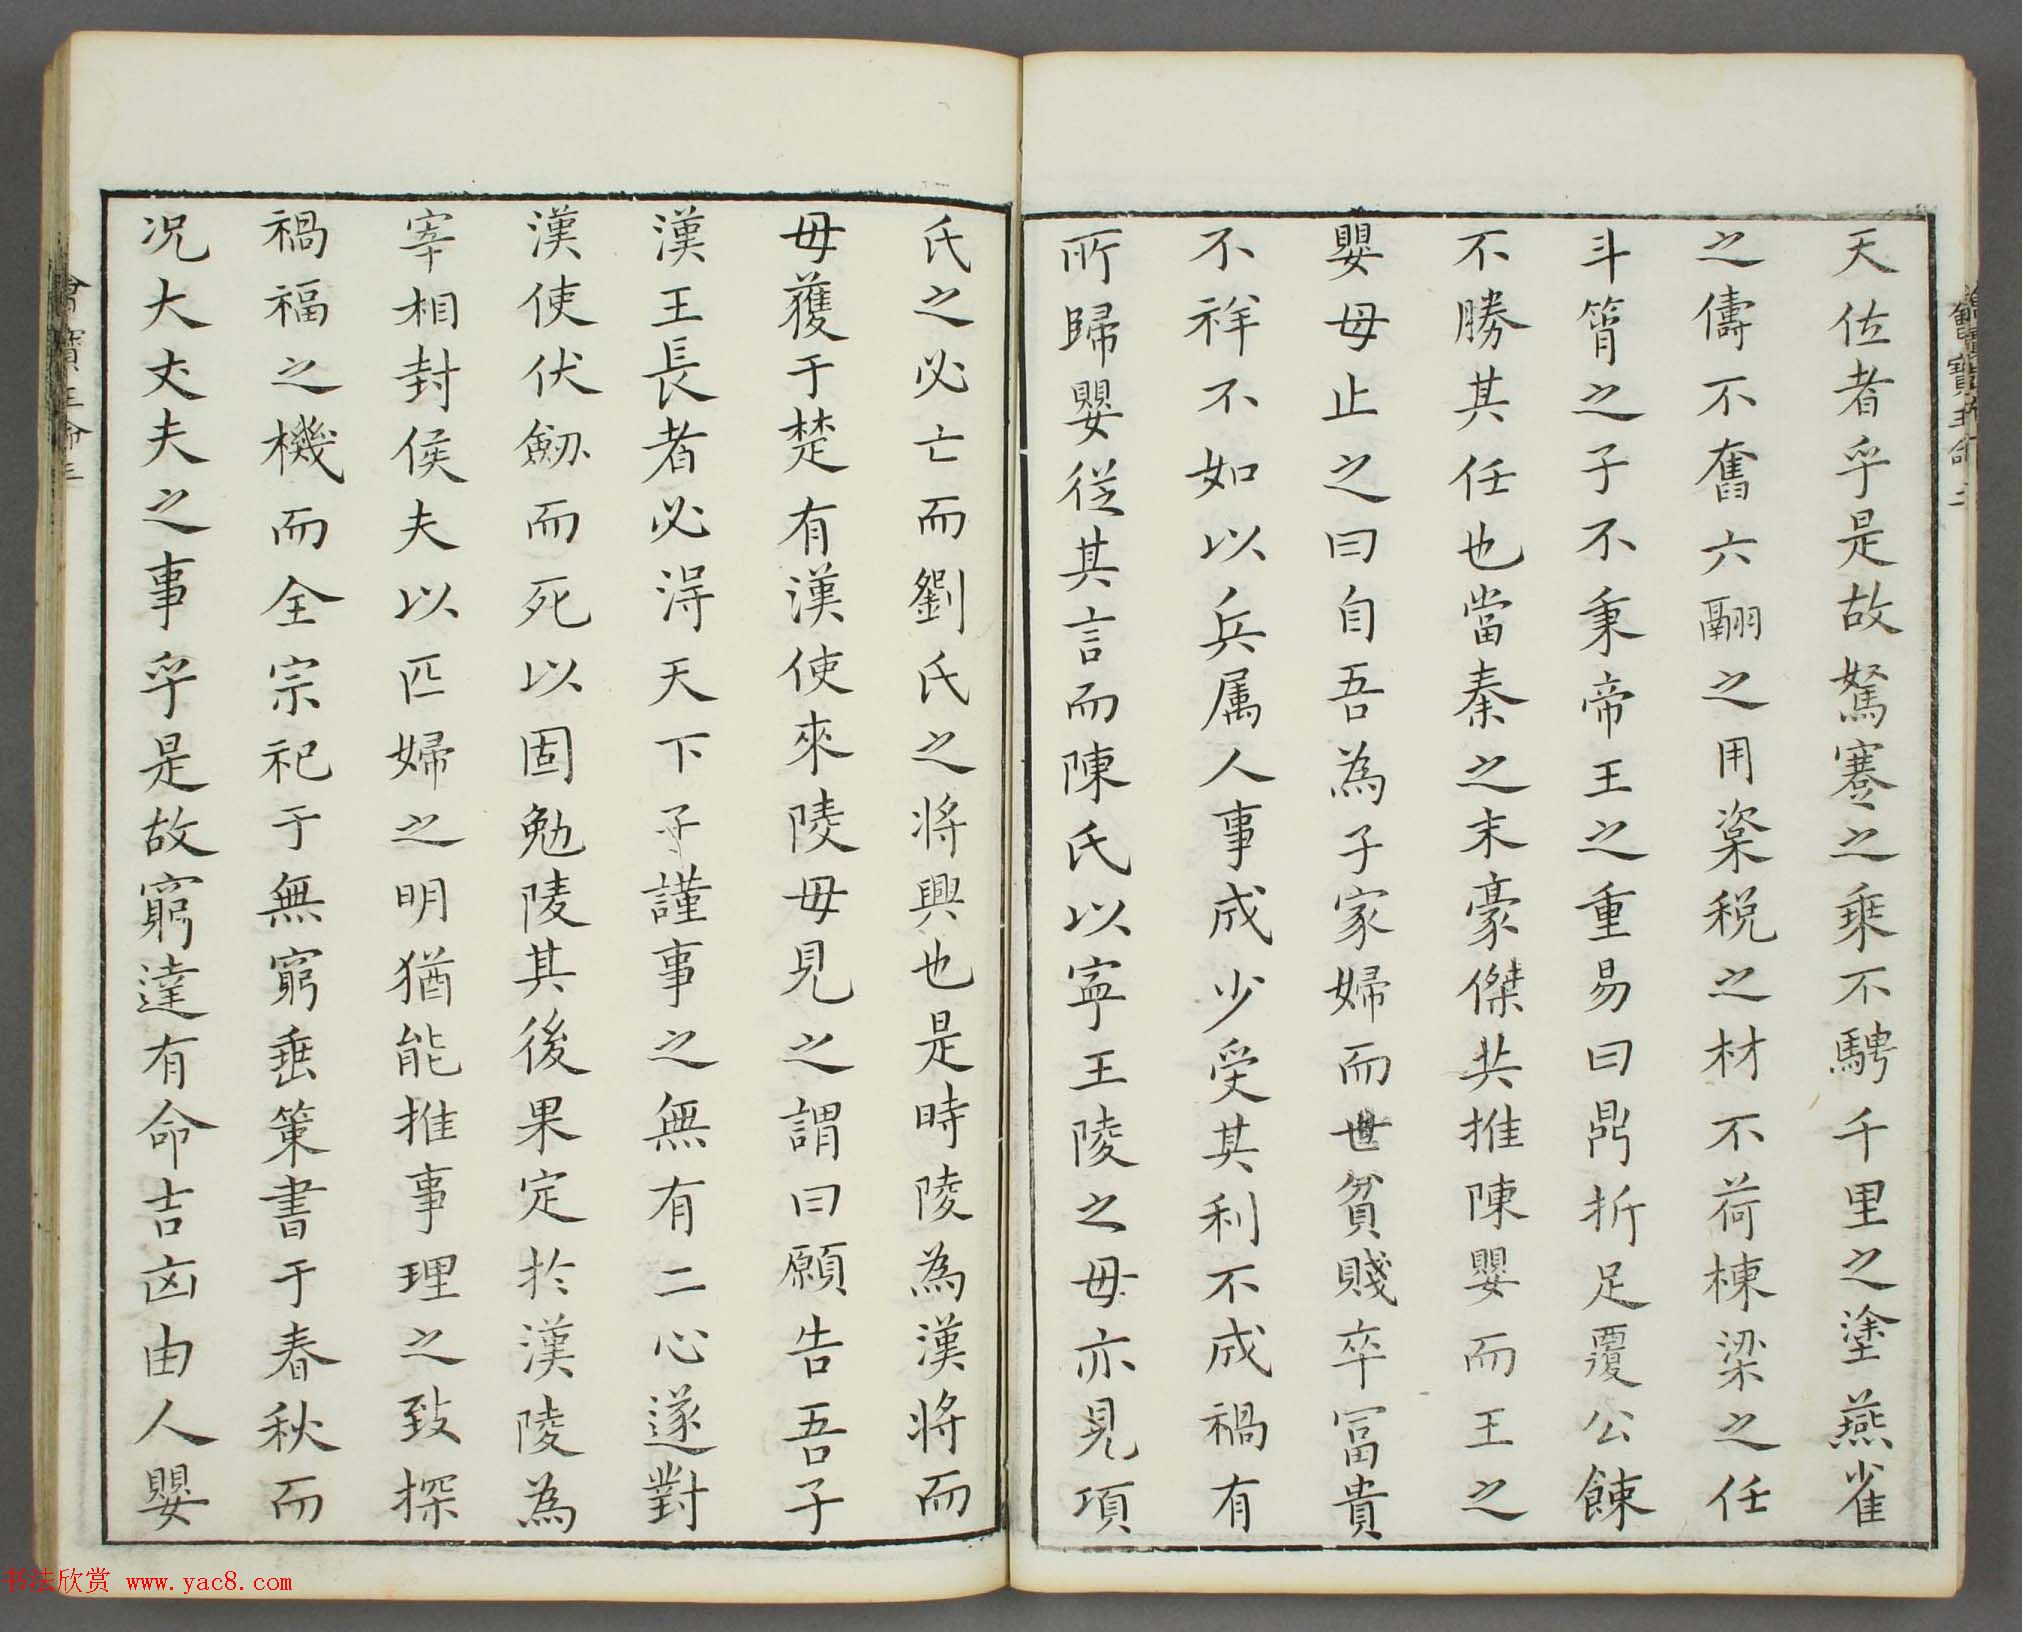 天位者乎是故駑蹇之乘不騁千里之塗燕雀
之儔不奮六翮之用楶梲之材不荷棟梁之任
斗筲之子不秉帝王之重易曰鼎折足覆公餗
不勝其任也當秦之末豪傑共推陳嬰而王之
嬰母止之曰自吾為子家婦而世貧賤卒富貴
不祥不如以兵属人事成少受其利不成禍有
所歸嬰從其言而陳氏以寧王陵之母亦見項
氏之必亡而劉氏之將興也是時陵為漢將而
母獲于楚有漢使來陵母見之謂曰願告吾子
漢王長者必得天下子謹事之無有二心遂對
漢使伏劒而死以固勉陵其後果定於漢陵為
宰相封侯夫以匹婦之明猶能推事理之致探
禍福之機而全宗祀于無窮垂策書于春秋而
况大丈夫之事乎是故窮達有命吉凶由人嬰
书法欣赏 www.yac8.com